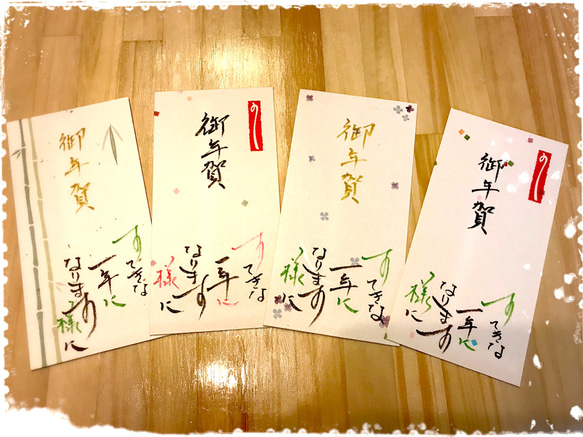 御年賀
すてきな
一年に
なります
様に
のし
御年賀
すてきな
一年に
なります
様に
御年賀
すてきな
一年に
なります
様に
のし
御年賀
すてきな
一年に
なります
様に